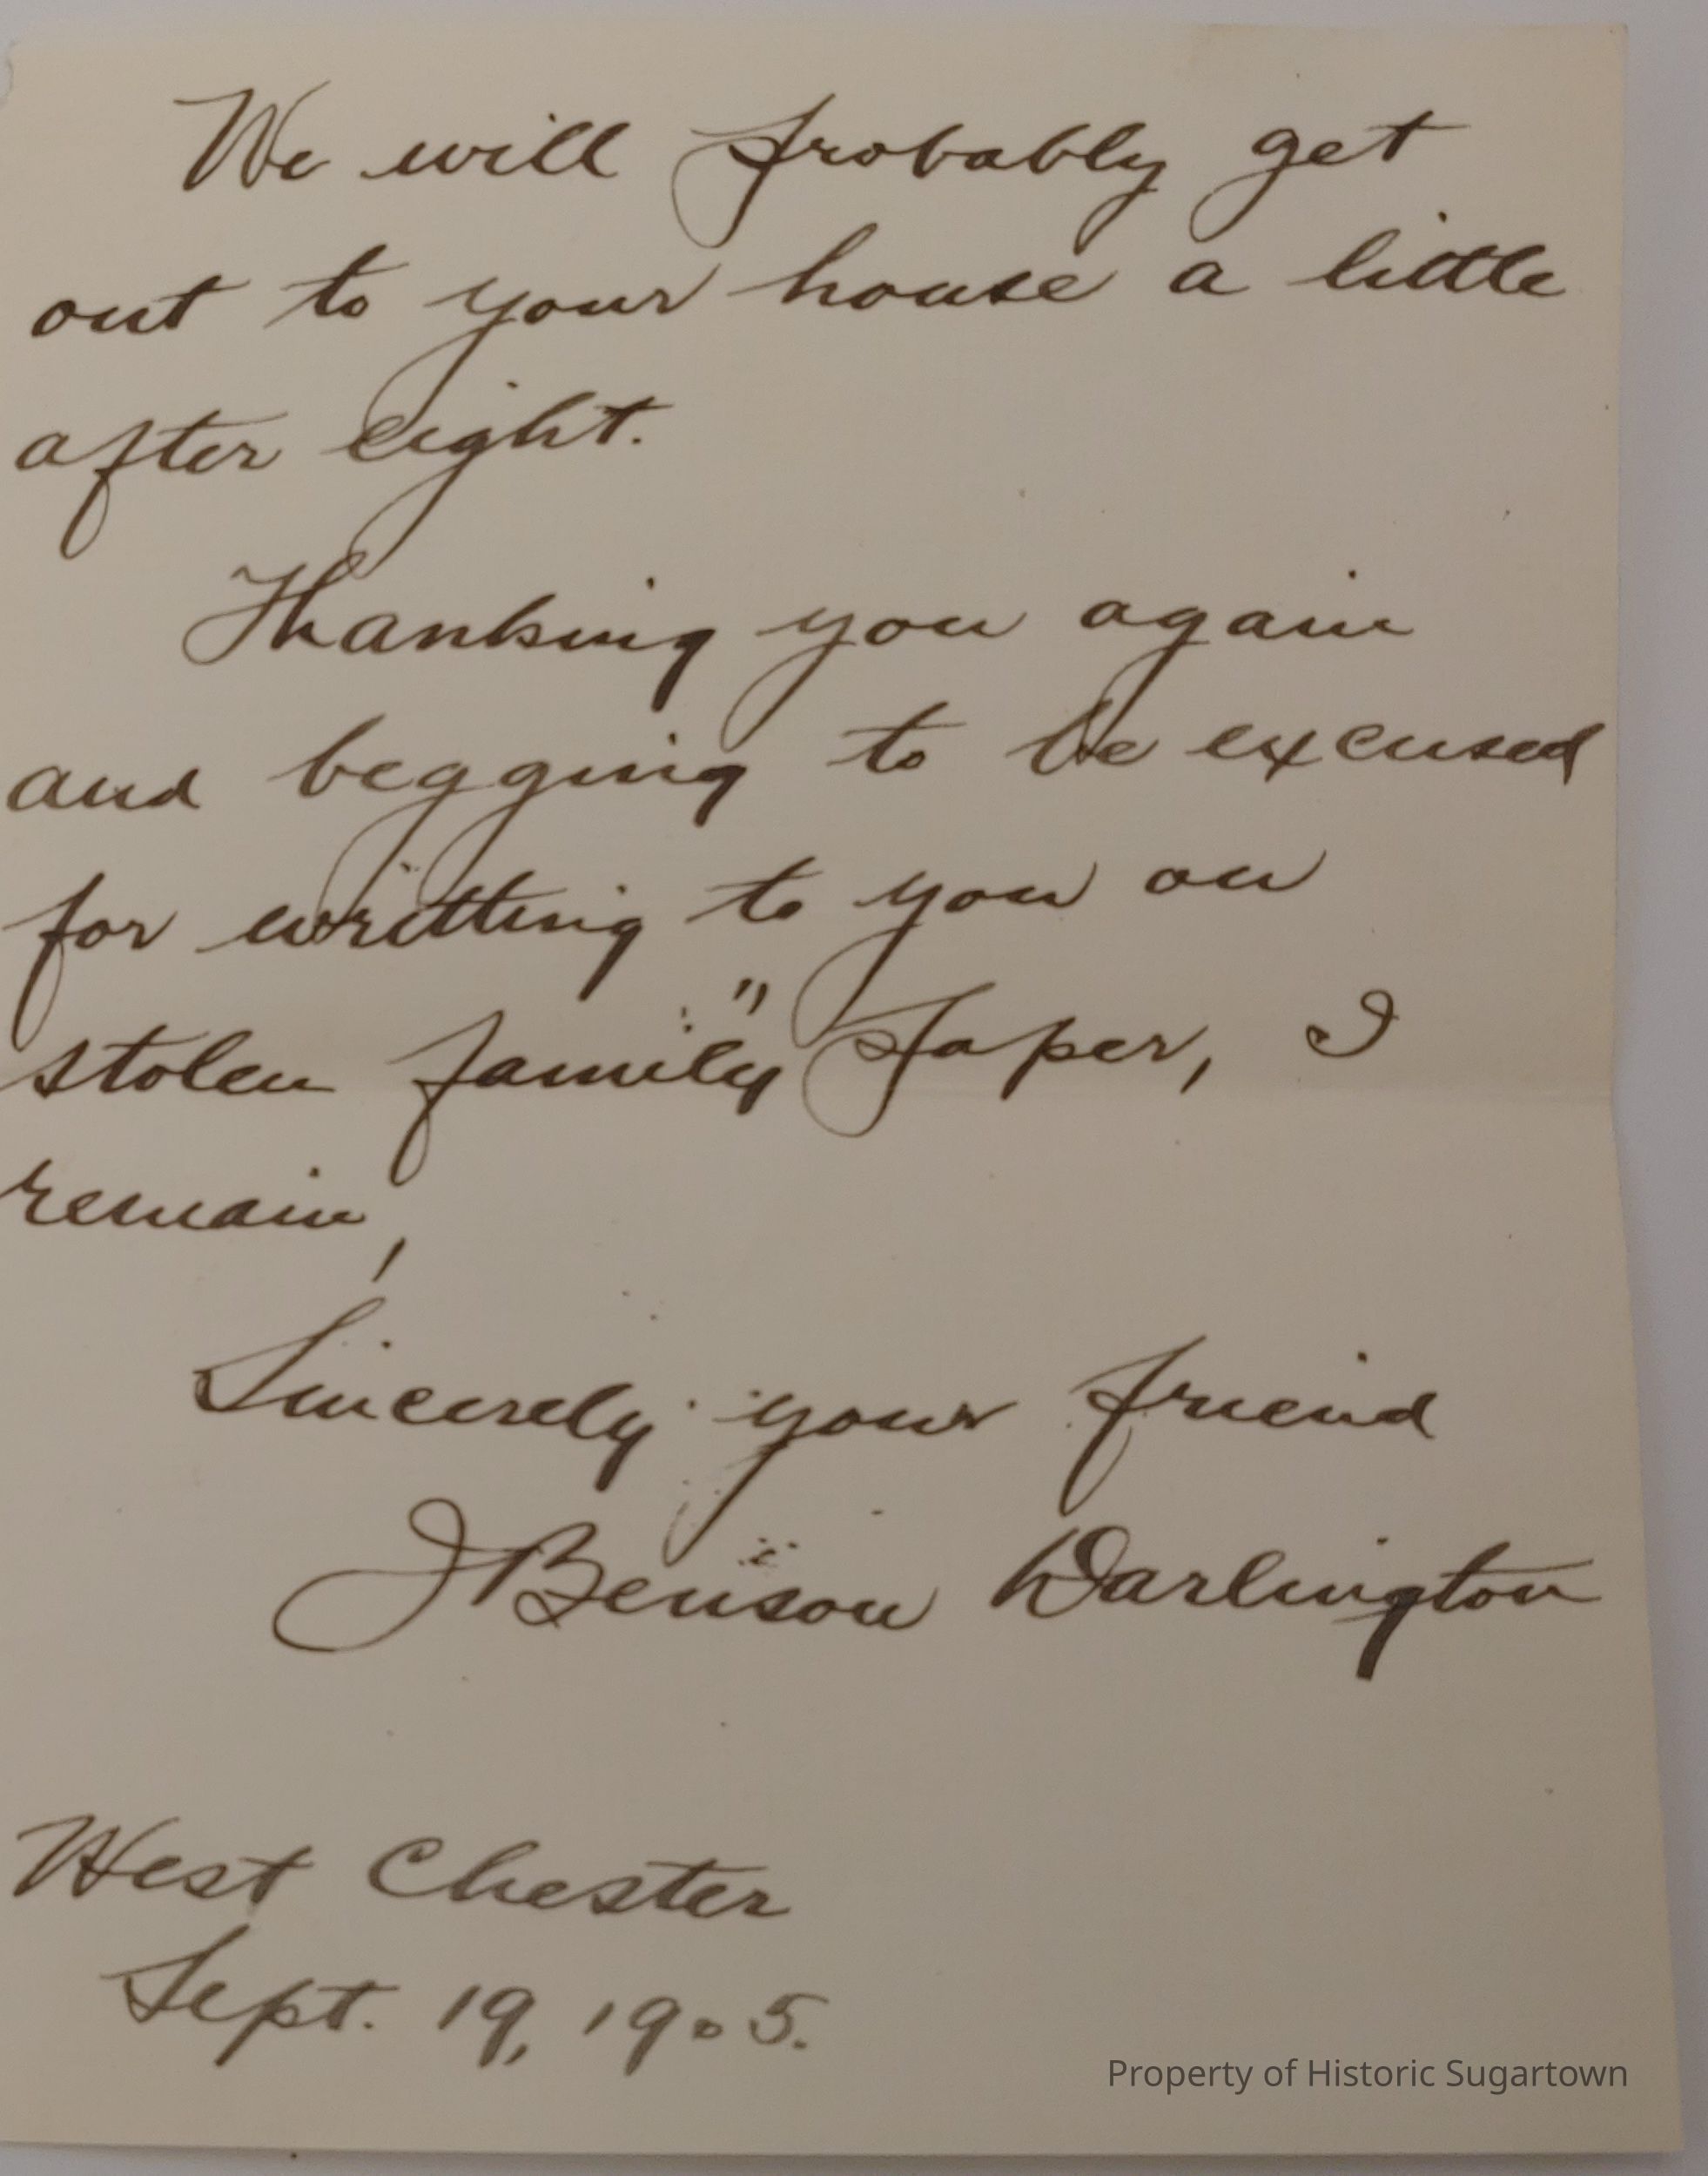 We will probably get
out to your house a little
after eight.
Thanking you again
and begging to be excused
for writting to you on
stolen family" Paper, I
remain,
Sincerely your friend
J Benson Darlington
West Chester
Sept. 19, 1905.
Property of Historic Sugartown